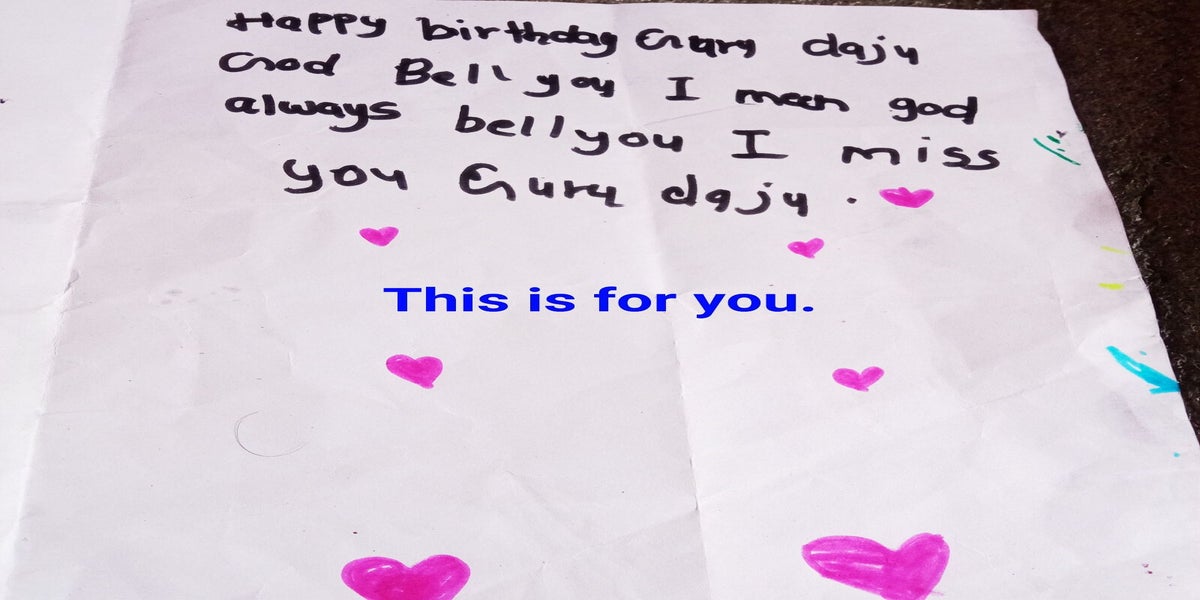 Happy birthday Guru daju
God Bell you I mean god
always bell you I miss
you Guru daju.
This is for you.